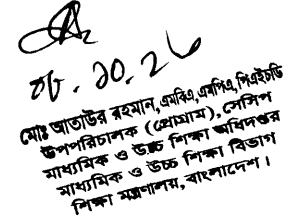 ০৮.১০.২৬
মোঃ আতাউর রহমান, এমবিএ, এমপিএ, পিএইচডি
উপপরিচালক (প্রোগ্রাম), সেসিপ
মাধ্যমিক ও উচ্চ শিক্ষা অধিদপ্তর
মাধ্যমিক ও উচ্চ শিক্ষা বিভাগ
শিক্ষা মন্ত্রণালয়, বাংলাদেশ।